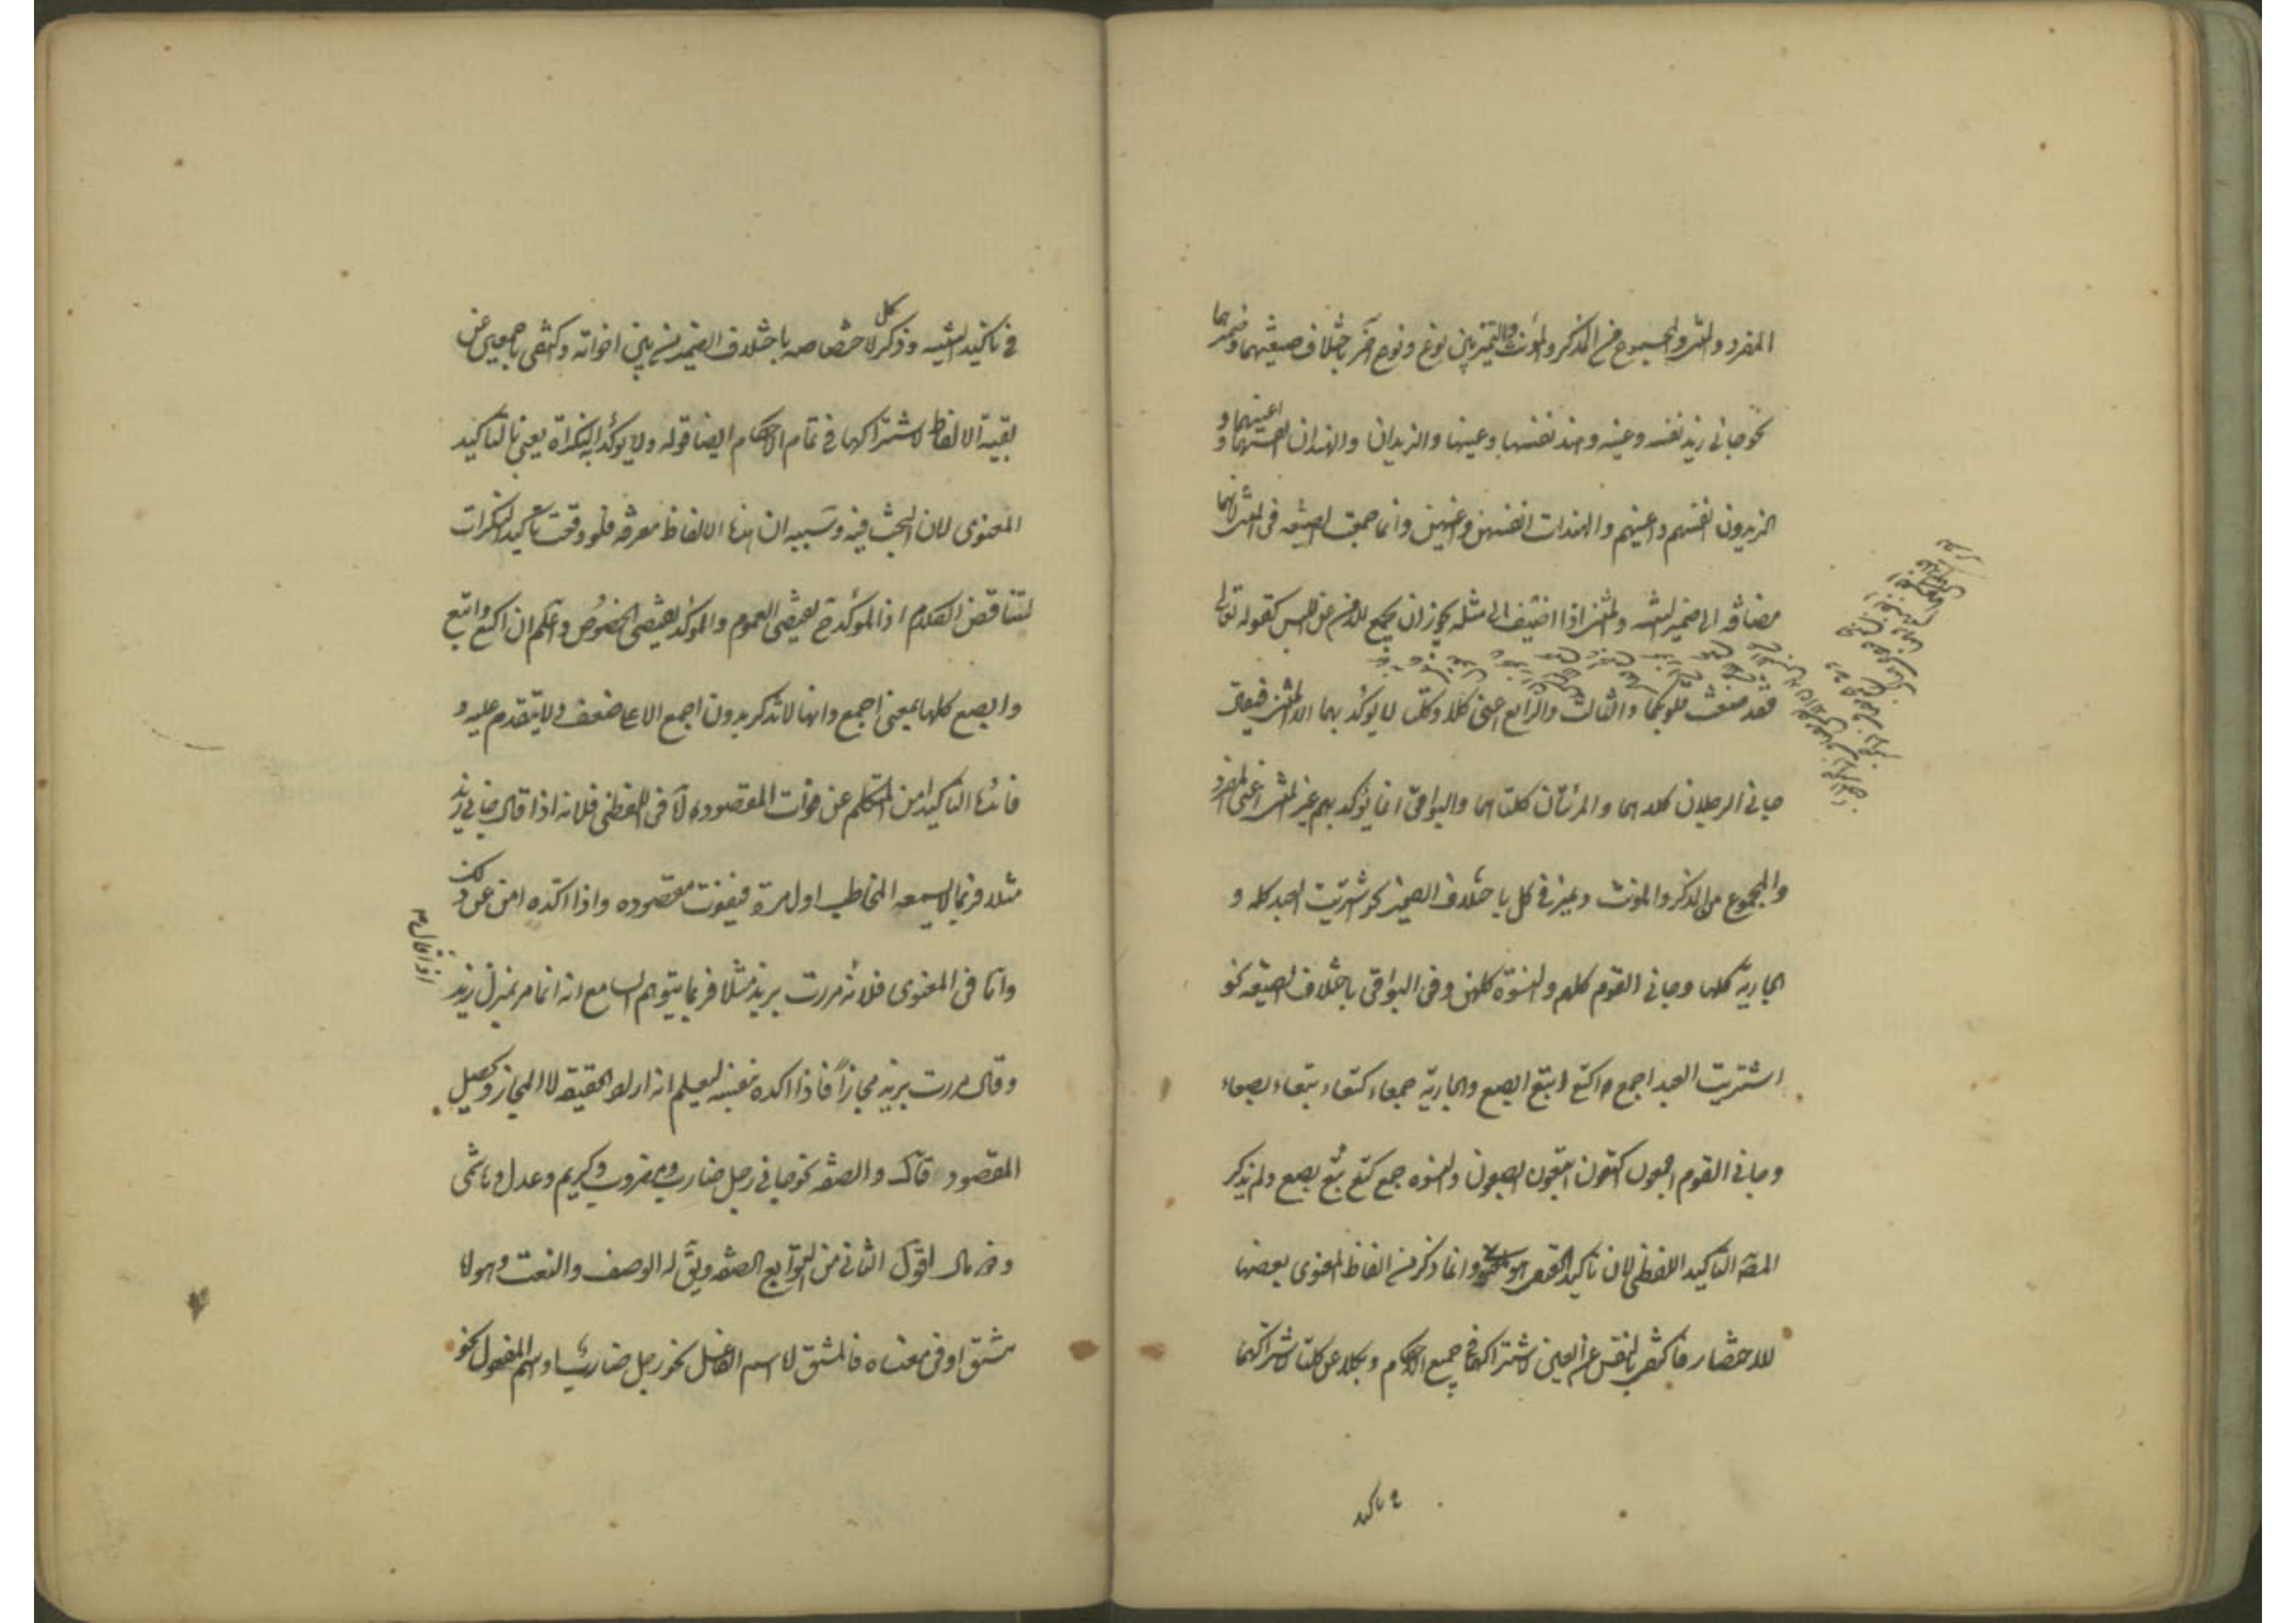 المفرد والمثنى والمجموع من المذكر والمؤنث والتميز بين نوع ونوع آخر باختلاف صيغتهما وضميرهما
نحو جاني زيد نفسه وعينه وهند نفسها وعينها والزيدان والهندان انفسهما و اعينهما و
الزيدون انفسهم واعينهم والهندات انفسهن واعينهن وانما جمعت الصيغه في المثنى لانهما
مضافة الى ضمير التثنيه والمثنى اذا اضيف الى مثله يجوز ان يجمع للامن عن اللبس كقوله تعالى
فقد صغت قلوبكما والثالث والرابع اعني كلا وكلتا لا يؤكد بهما الا المثنى فيقال
جاني الرجلان كلاهما والمرئتان كلتاهما والبواقي انما يؤكد بهم غير المثنى اعني المفرد
والمجموع من المذكر والمؤنث ويميز في كل باختلاف الضمير نحو اشتريت العبد كله و
الجارية كلها وجاني القوم كلهم والنسوة كلهن وفي البواقي باختلاف الصيغه نحو
اشتريت العبد اجمع اكتع ابتع ابصع والجارية جمعاء كتعاء بتعاء بصعاء
وجاني القوم اجمعون اكتعون ابتعون ابصعون والنسوه جمع كتع بتع بصع ولم يذكر
المصـ التاكيد اللفظي لان تاكيد هو وانما ذكر من الفاظ المعنوي بعضها
للاختصار فاكتفى بالنفس عن العين لاشتراكهما في جميع الاحكام وبكلا عن كلتا لاشتراكهما
في تاكيد
في تاكيد التثنيه وذكر كل لاختصاصه باختلاف الضمير من بين اخواته واكتفى باجمعين عن
بقية الالفاظ لاشتراكها في تمام الاحكام ايضا قوله ولا يؤكد به النكراة يعني بالتاكيد
المعنوي لان البحث فيه وسببه ان هذه الالفاظ معرفه فلو وقعت تاكيد النكرات
لتناقض الكلام اذ المؤكدة تقتضى العموم والمؤكد يقتضى الخصوص واعلم ان اكتع وابتع
وابصع كلها بمعنى اجمع وانها لا تذكر بدون اجمع الا على ضعف ولا يتقدم عليه و
فائدة التاكيد امن المتكلم عن فوات المقصوده اما في اللفظي فلانه اذا قال جاني زيد
مثلا فربما لا يسمعه المخاطب اول مرة فيفوت مقصوده واذا اكده امن عن ذلك
واما في المعنوي فلانه اذا قال مررت بزيد مثلا فربما يتوهم السامع انه انما مر بمنزل زيد
وقال مررت بزيد مجازاً فاذا اكده بنفسه ليعلم انه اراد الحقيقه لا المجاز ويحصل
المقصود قال والصفه نحو جاني رجل ضارب ومضروب وكريم وعدل وهاشمي
وذو مال اقول الثاني من التوابع الصفه ويق له الوصف والنعت وهو اما
مشتق او في معناه فالمشتق اما اسم الفاعل نحو رجل ضارب واسم المفعول نحو